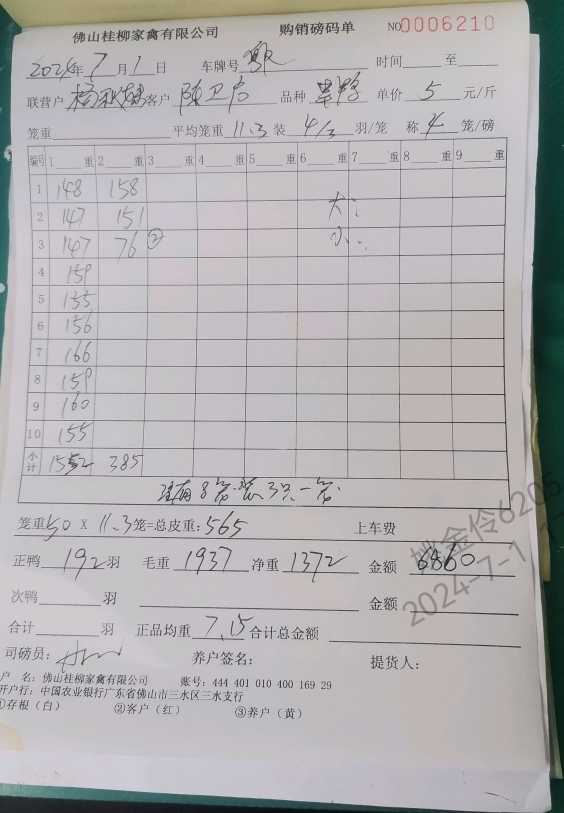 佛山桂柳家禽有限公司 购销磅码单 NO0006210
2024年7月1日 车牌号 时间 至
联营户 客户 陈卫 品种 单价 5 元/斤
笼重 平均笼重 11.3 装 4/3 羽/笼 称 4 笼/磅
编号 1 重 2 重 3 重 4 重 5 重 6 重 7 重 8 重 9 重
1 148 158
2 147 151 大:
3 147 76 ② 小:
4 159
5 155
6 156
7 166
8 159
9 160
10 155
小计 1552 385
8笼 装3只一笼
笼重50 X 11.3笼=总皮重:565 上车费
正鸭 192羽 毛重 1937 净重 1372 金额 6860
次鸭 羽 金额
合计 羽 正品均重 7.15 合计总金额
司磅员: 养户签名: 提货人:
户 名:佛山桂柳家禽有限公司 账号:444 401 010 400 169 29
开户行:中国农业银行广东省佛山市三水区三水支行
①存根(白) ②客户(红) ③养户(黄)
金伶6205
2024-7-1